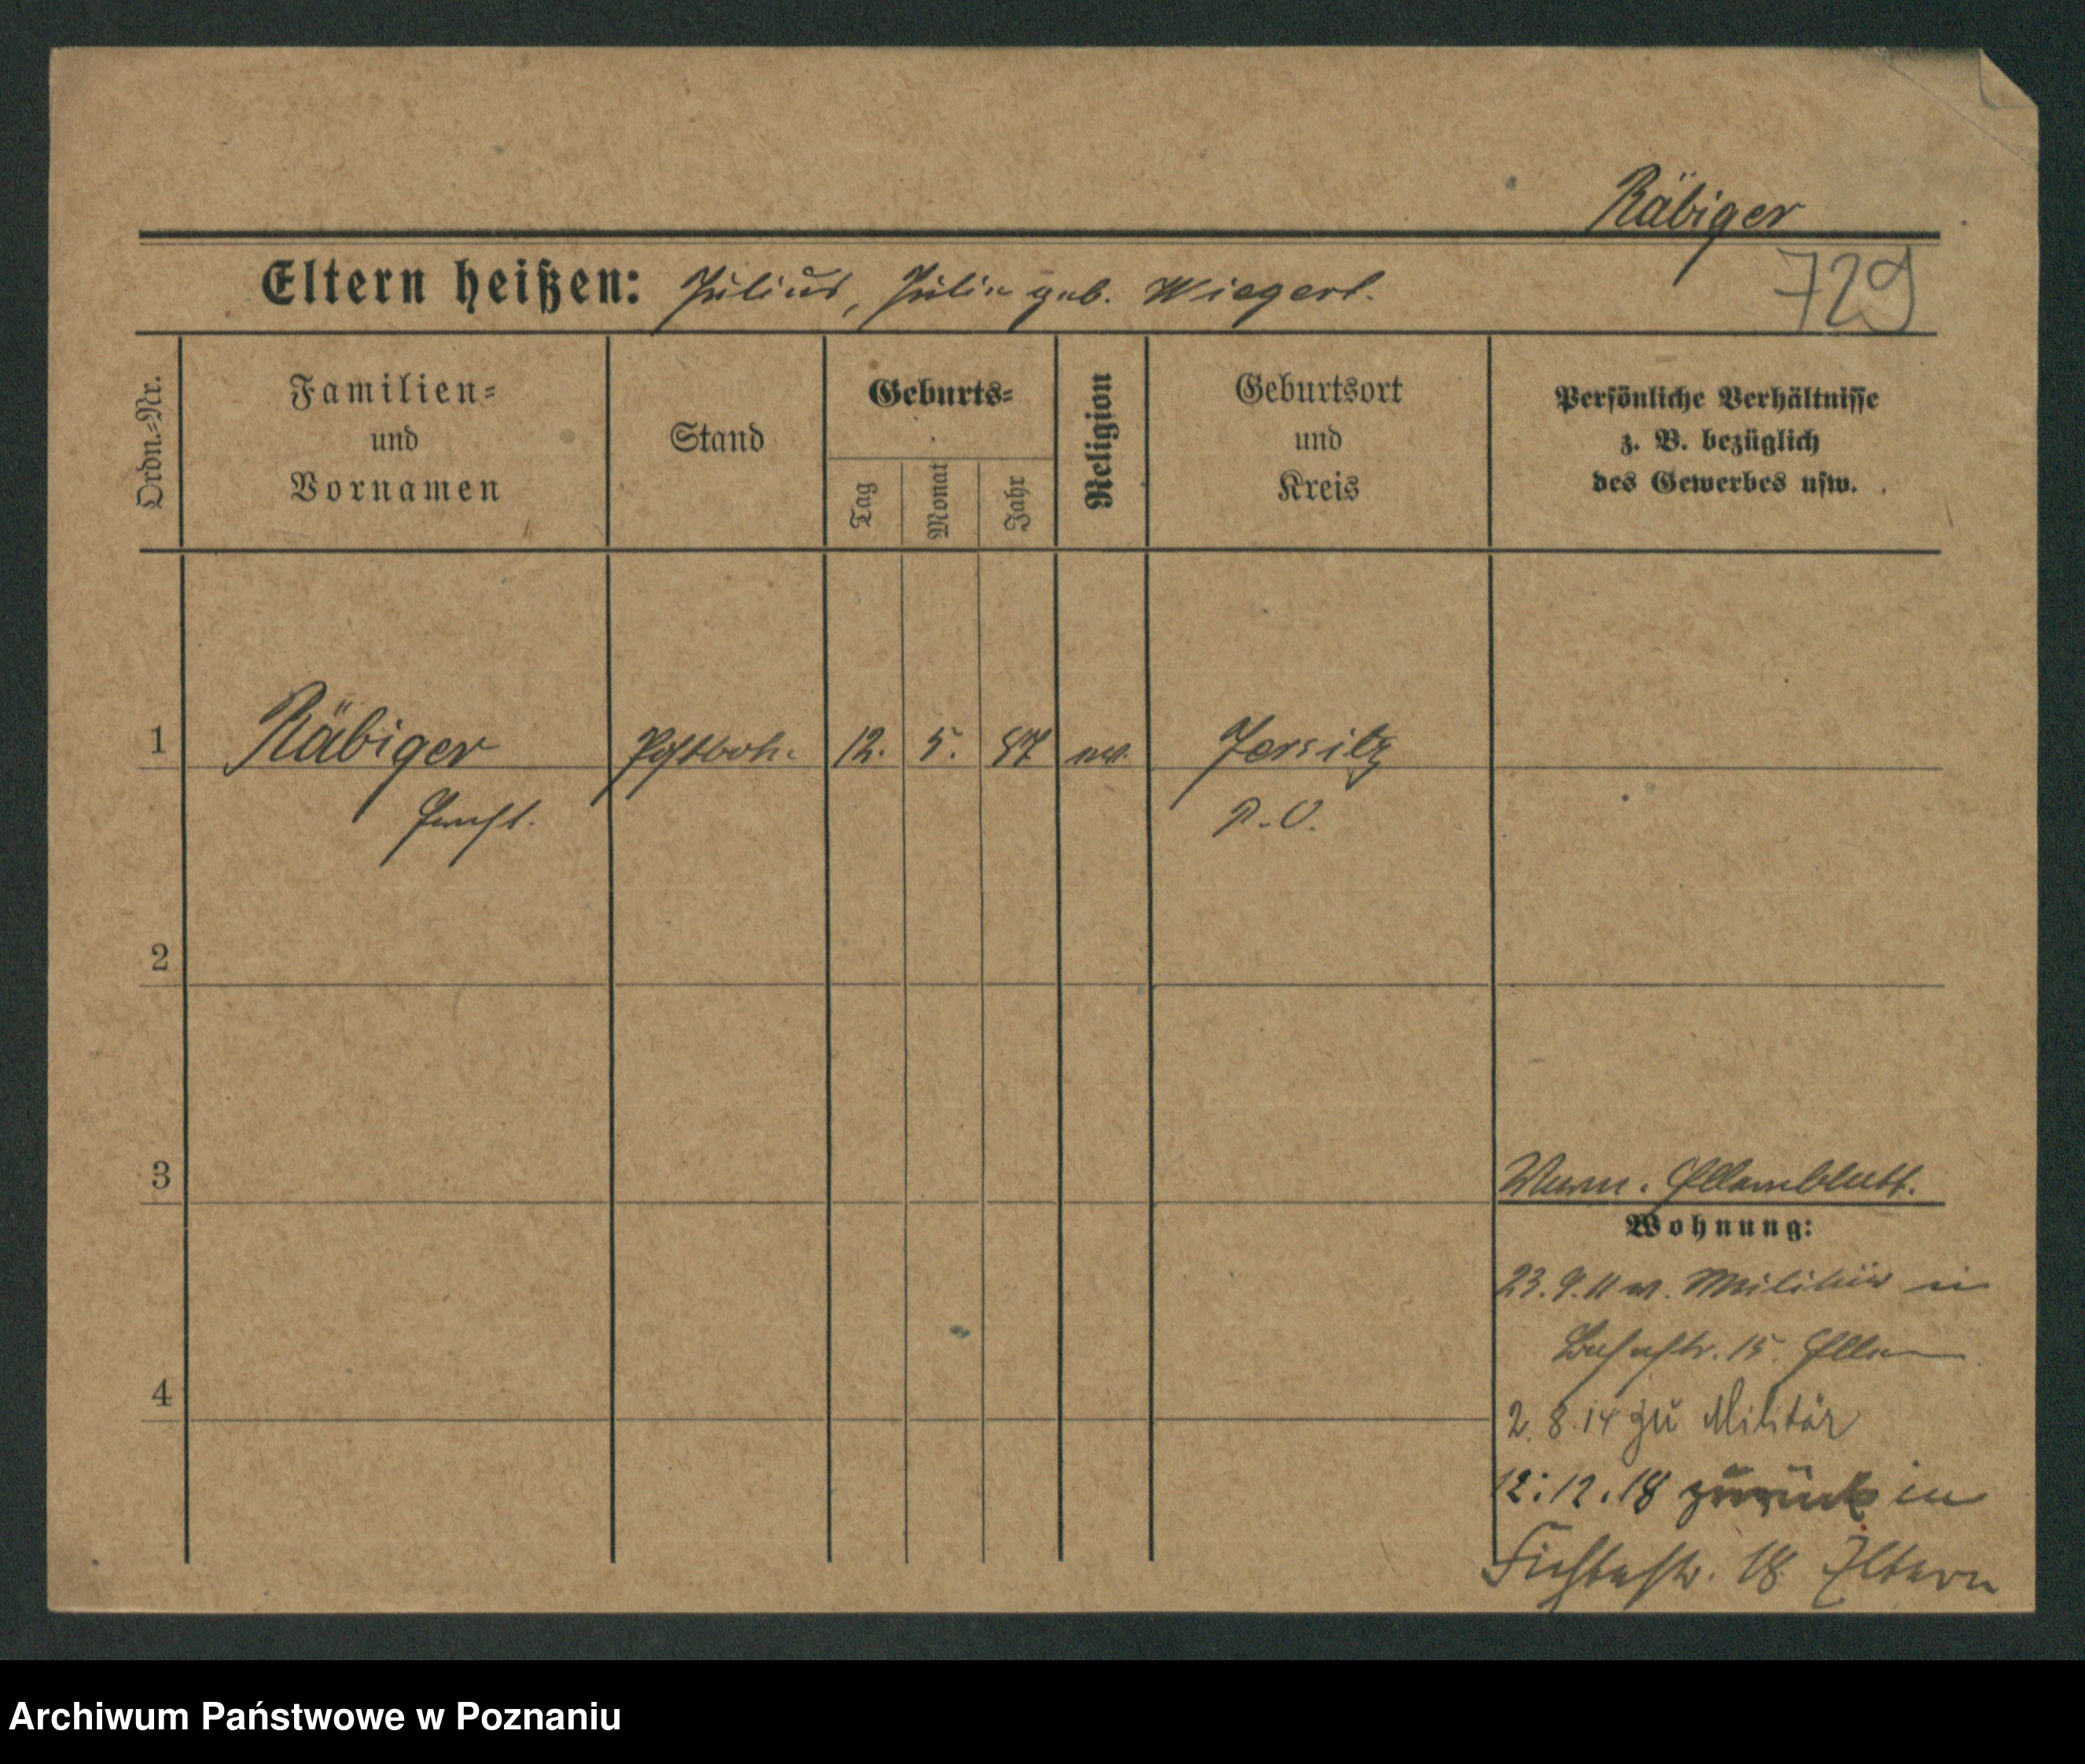 Räbiger
729
Eltern heißen: Julius, Julie geb. Wiegert.
Ordn.=Nr.
Familien=
und
Vornamen
Stand
Geburts=
Tag
Monat
Jahr
Religion
Geburtsort
und
Kreis
Persönliche Verhältnisse
z. B. bezüglich
des Gewerbes usw.
1 Räbiger 12. 5. 87 ev. Jersitz
Ernst. P. O.
2
3
Wohnung:
23.9.11 v. Militär in
15. Eltern
4
2. 8. 14 zu Militär
12. 12. 18 zurück in
Fichtestr. 18 Eltern
Archiwum Państwowe w Poznaniu